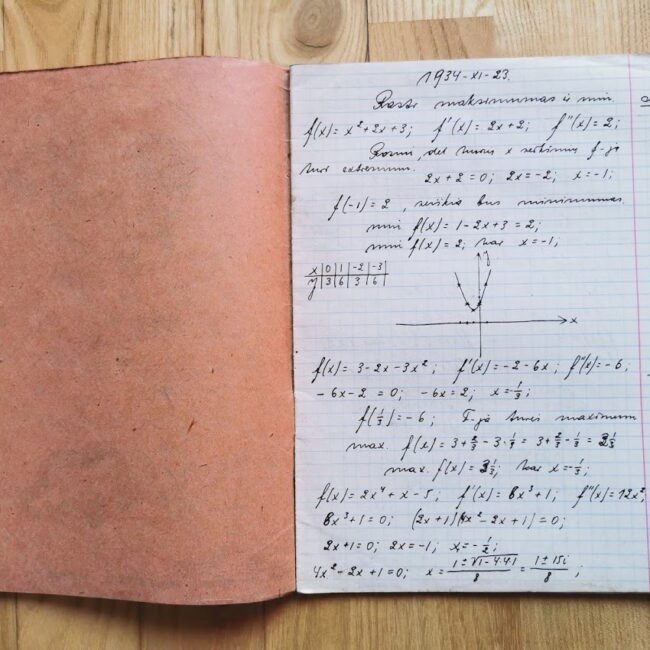 1934-XI-23.
Rasti maksimumas ir min.
f(x) = x²+2x+3; f'(x) = 2x+2; f"(x) = 2;
x f-ja
turi extremum.
2x+2=0; 2x=-2; x=-1;
f(-1)=2, reiškia bus minimumas.
mini f(x) = 1-2x+3 = 2;
mini f(x) = 2; kar x=-1;
y
x | 0 | 1 | -2 | -3
y | 3 | 6 | 3 | 6
x
f(x) = 3-2x-3x²; f'(x) = -2-6x; f"(x) = -6,
-6x-2 = 0; -6x=2; x=-1/3;
f(1/3) = -6; F-ja turės maximum
max. f(x) = 3+2/3-3·1/9 = 3+2/3-1/3 = 3 1/3
max. f(x) = 3 1/3; kar x=-1/3;
f(x) = 2x⁴+x-5; f'(x) = 8x³+1; f"(x) = 12x²;
8x³+1=0; (2x+1)(4x²-2x+1)=0;
2x+1=0; 2x=-1; x=-1/2;
4x²-2x+1=0; x = (1±√1-4·4·1)/8 = (1±15i)/8;